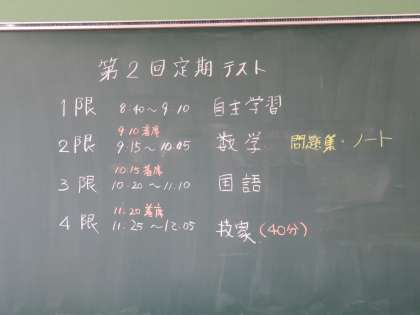 第2回定期テスト
1限 8:40～9:10 自主学習
9:10着席
2限 9:15～10:05 数学 問題集・ノート
10:15着席
3限 10:20～11:10 国語
11:20着席
4限 11:25～12:05 技家(40分)